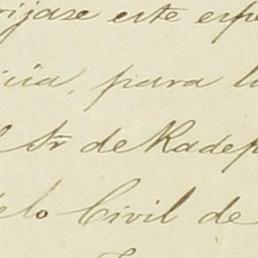 rijase este espe
icia, para la
l Sr de Radep
elo Civil de